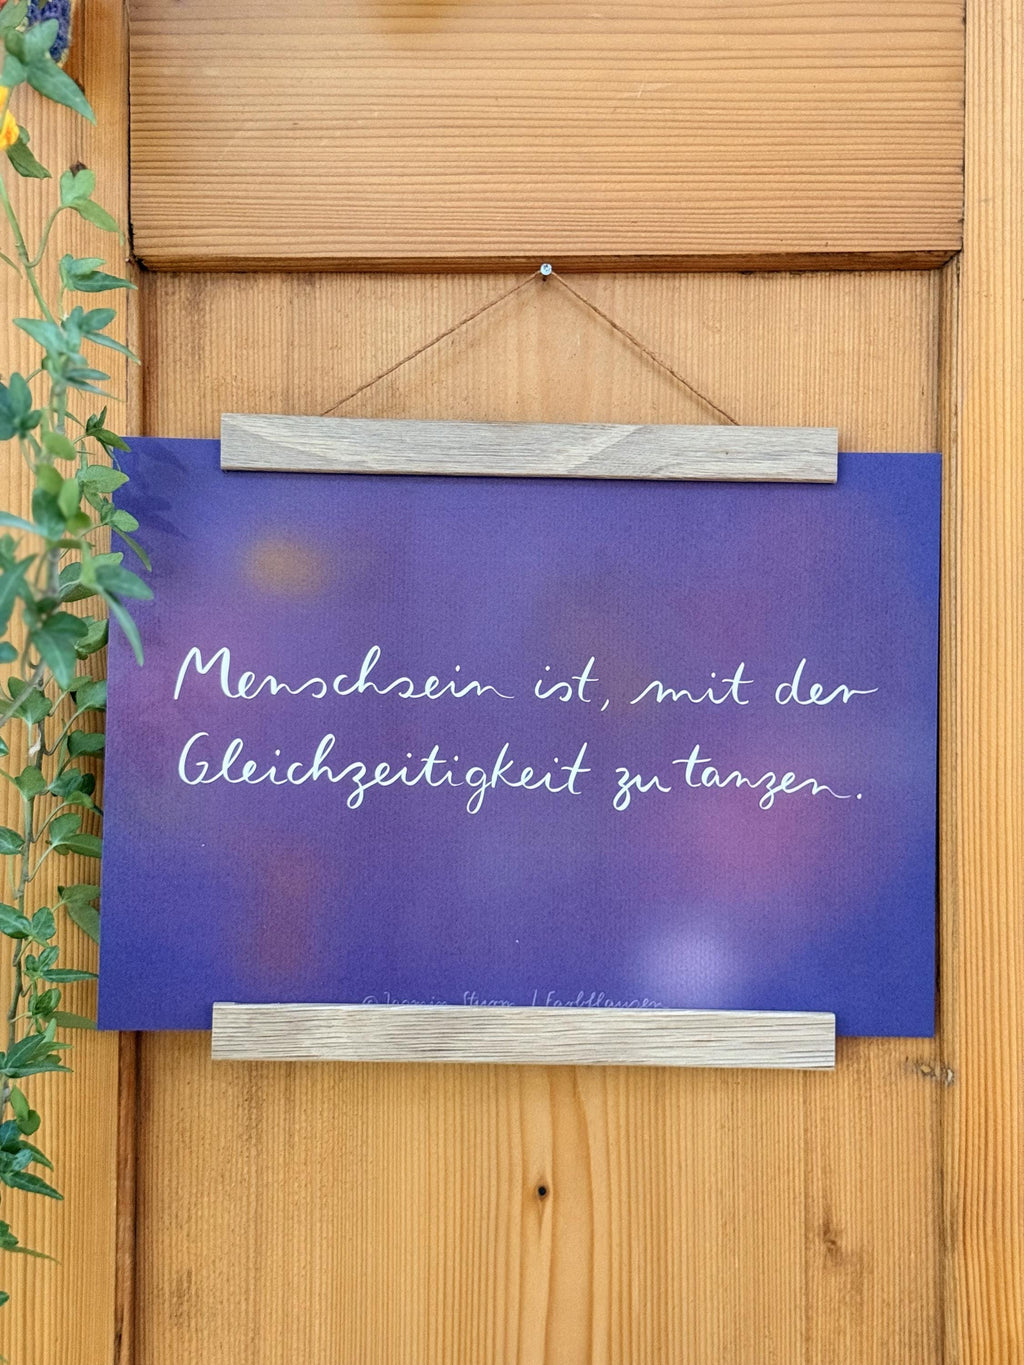 Menschsein ist, mit der
Gleichzeitigkeit zu tanzen.
© Jasmin Sturm / Farbflausen